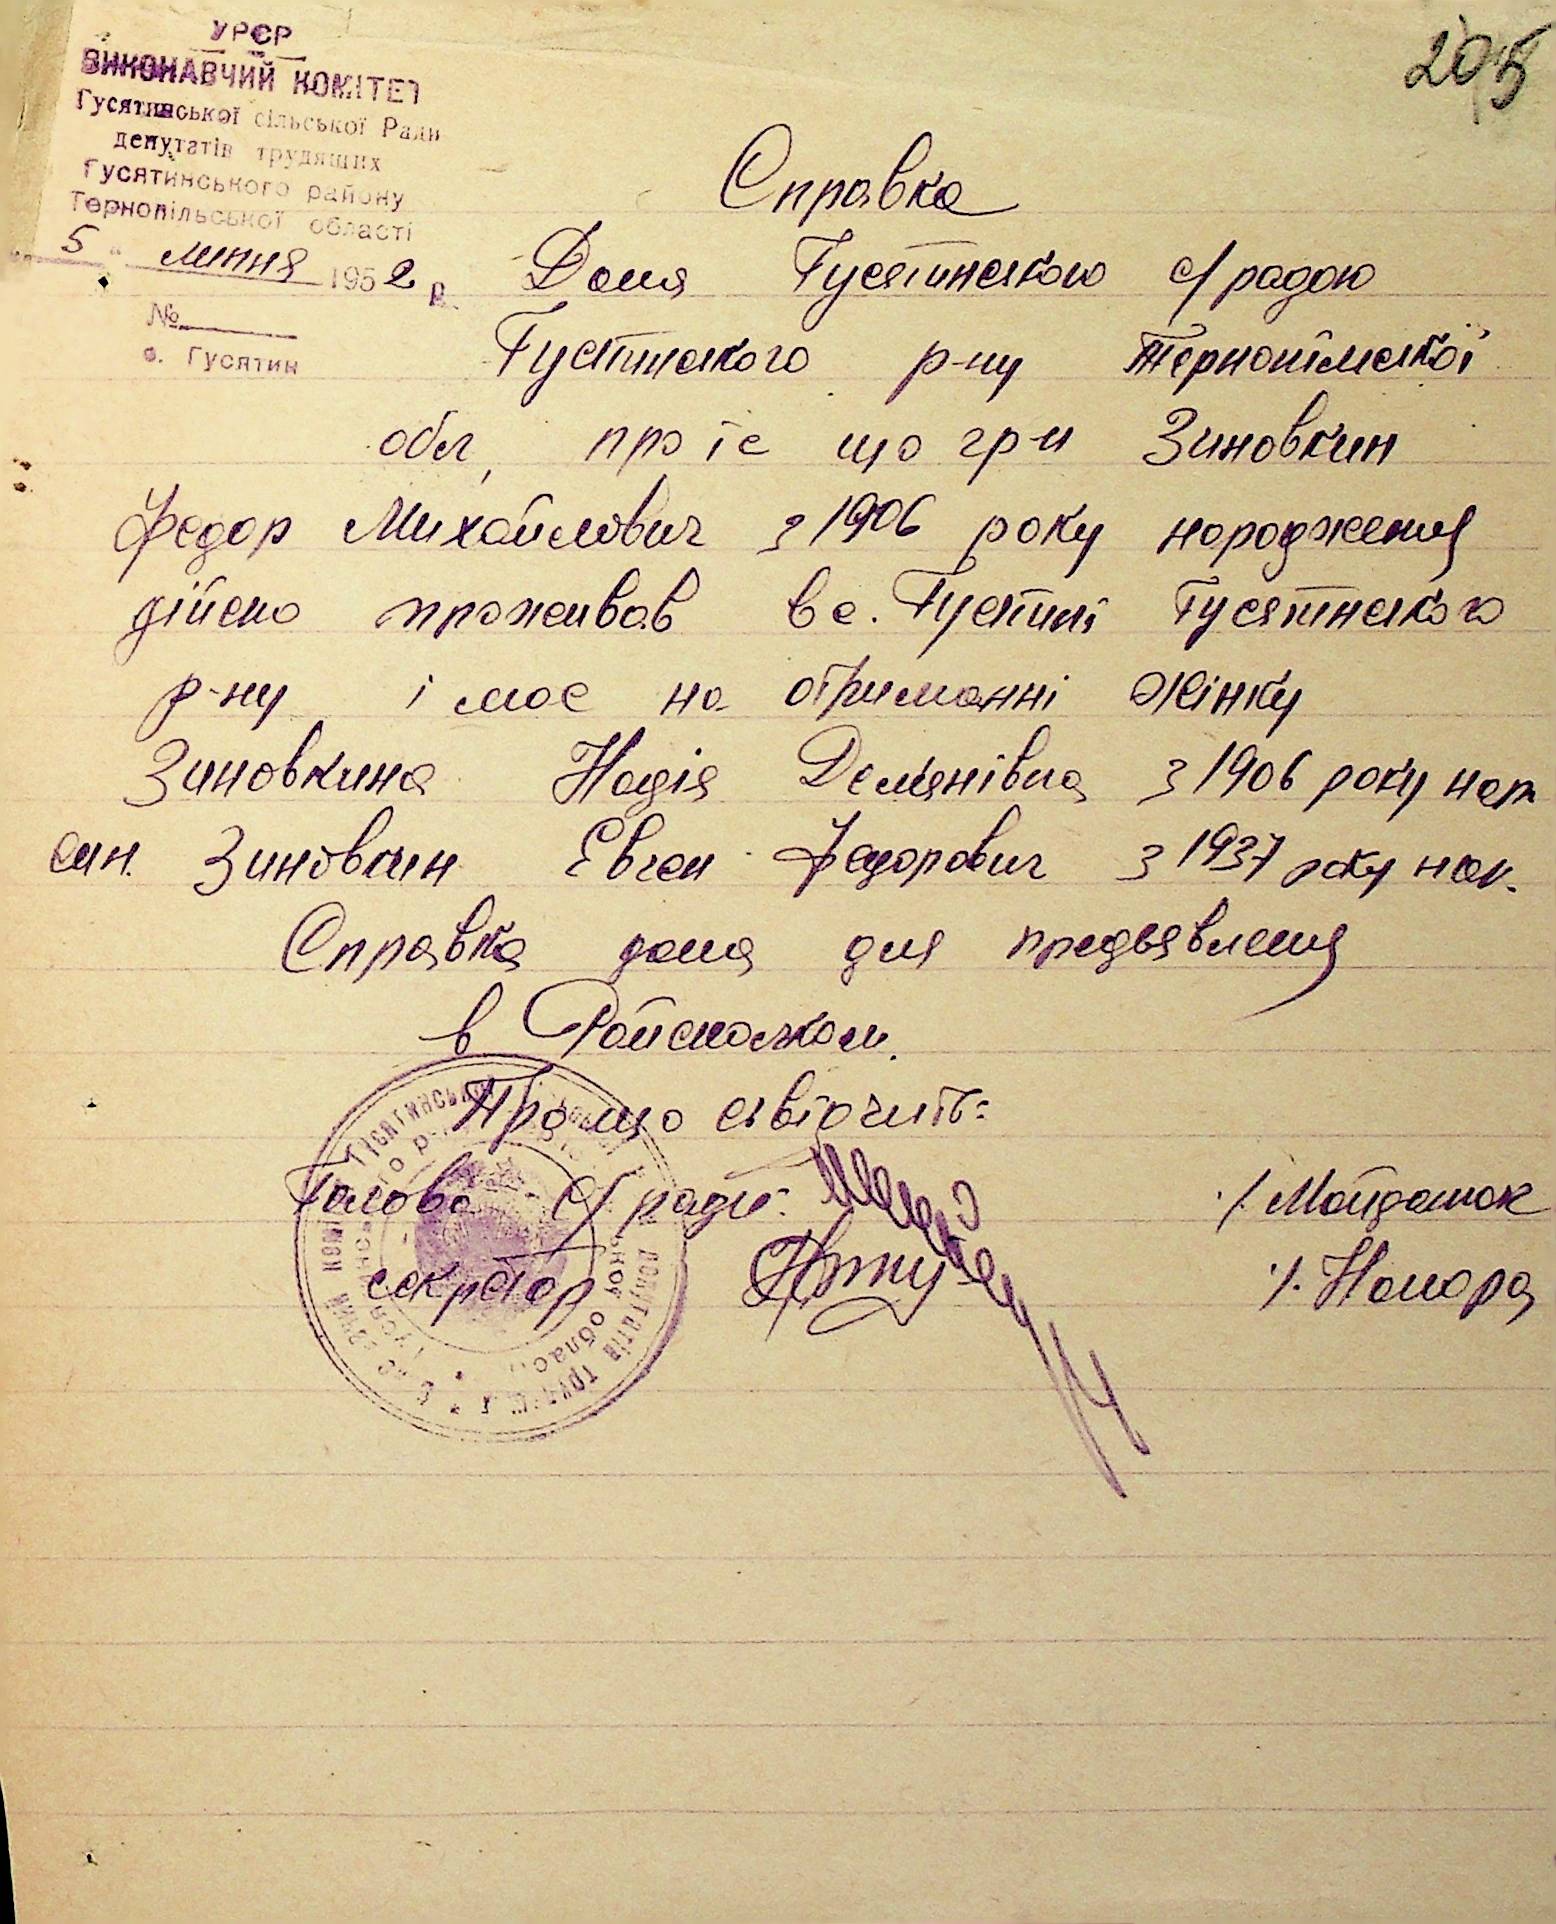 205
УРСР
ВИКОНАВЧИЙ КОМІТЕТ
Гусятинської сільської Ради
депутатів трудящих
Гусятинського району
Тернопільської області
5 " липня 1952 р.
№
с. Гусятин
Справка
Дона Гусятинскою с/радою
Гусятинского р-ну Тернопільської
обл, про те що гр-н Зиновкин
Федор Михайлович з 1906 року народження
дійсно проживав в с. Гусятині Гусятинского
р-ну і має на отриманні жінку
Зиновкина Надія Демянівна з 1906 року нар
син. Зиновкин Евген Федорович з 1937 року нар.
Справка дана для предьявлення
в
Про що свідчить:
Голова С/ради:
/. Майданюк
секретар
/.